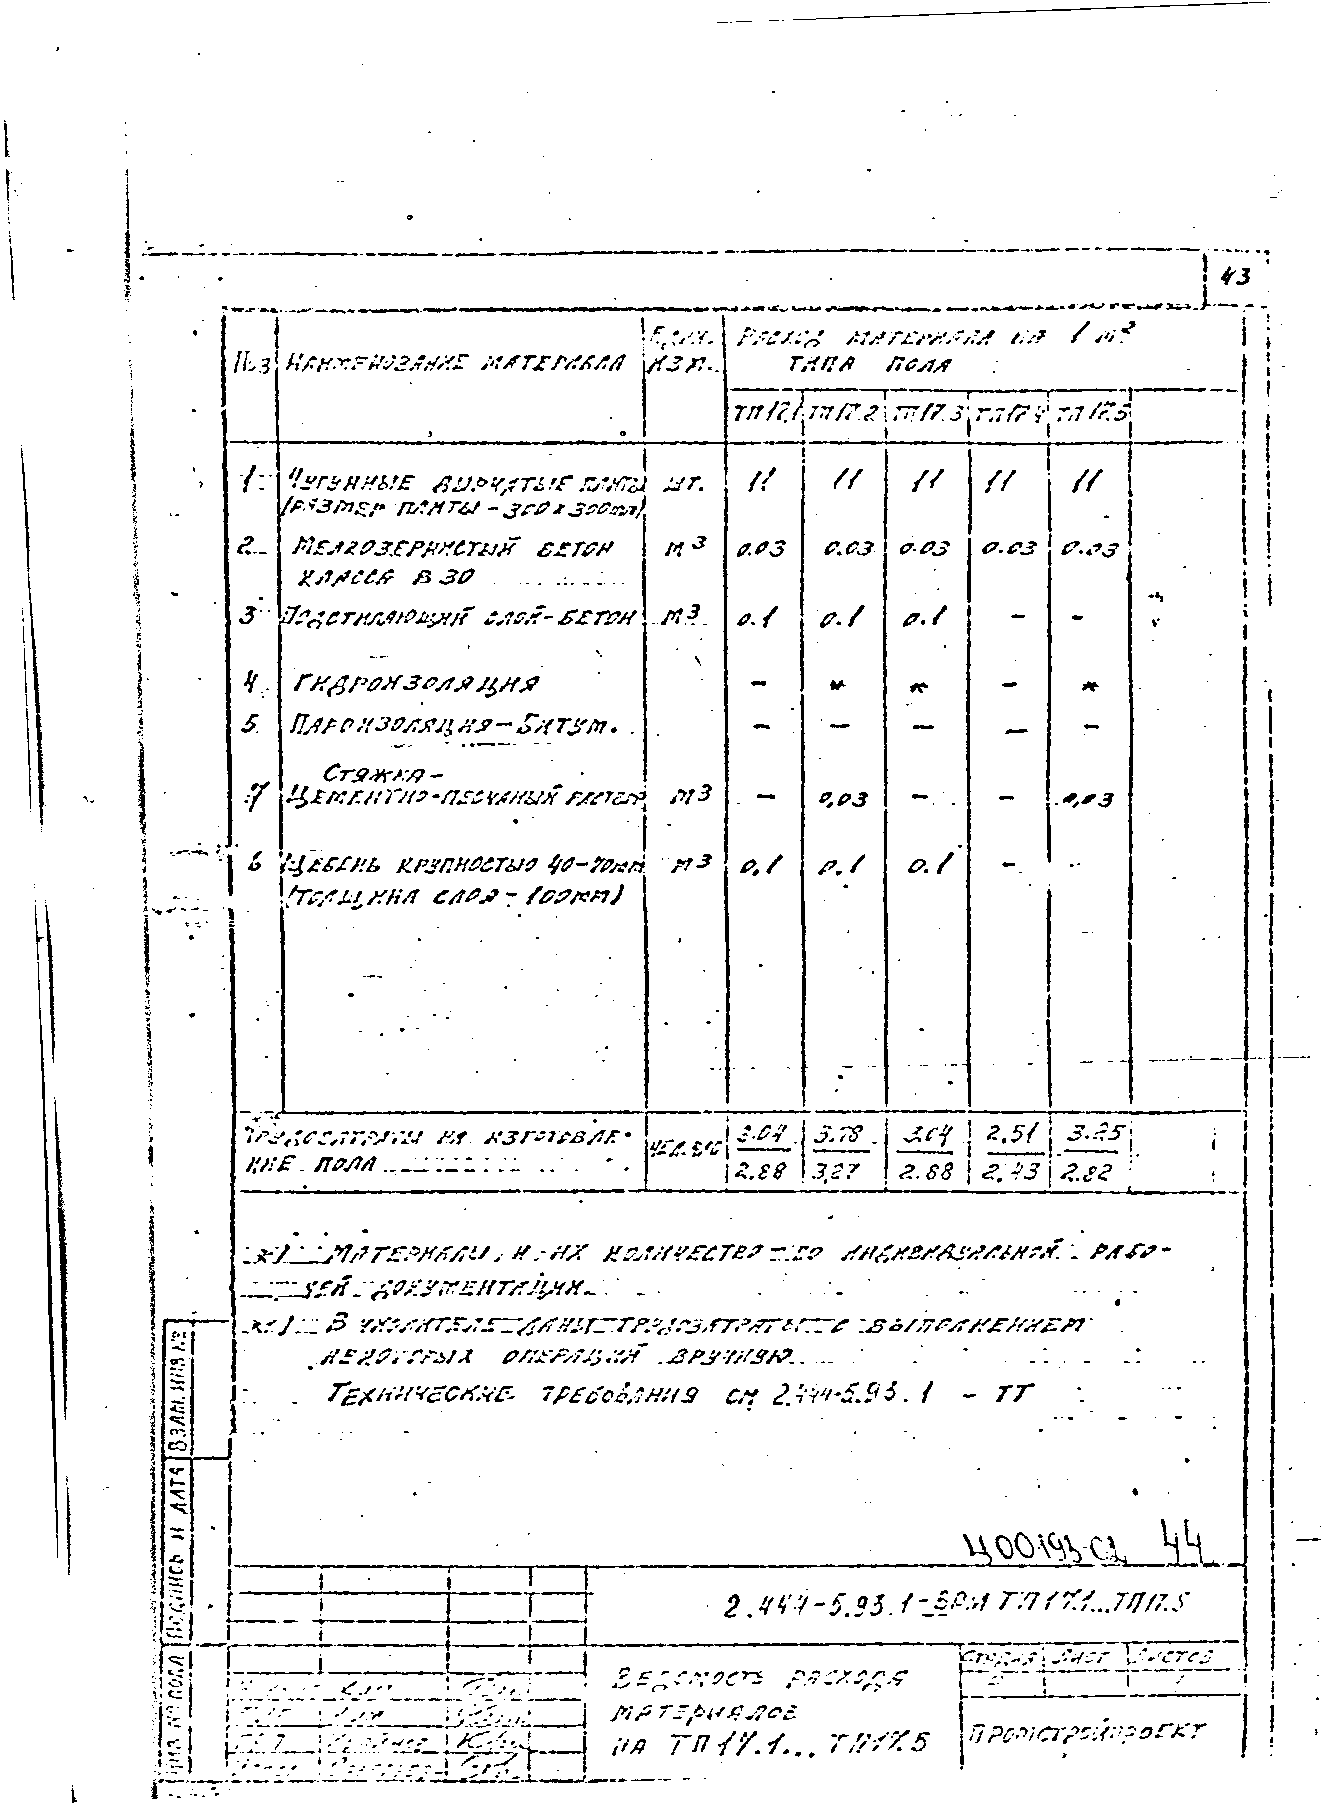 43
Поз Наименование материала Един. изм. Расход материала на 1 м²
типа пола
ТП17.1 ТП17.2 ТП17.3 ТП17.4 ТП17.5
1 Чугунные дырчатые плиты шт. 11 11 11 11 11
(размер плиты - 300 х 300мм)
2 Мелкозернистый бетон м3 0.03 0.03 0.03 0.03 0.03
класса В 30
3 Подстилающий слой - бетон м3 0.1 0.1 0.1 - -
4 Гидроизоляция - * * - *
5. Пароизоляция - битум. - - - - -
Стяжка -
7 Цементно-песчаный раствор м3 - 0,03 - - 0,03
6 Щебень крупностью 40-70мм м3 0,1 0.1 0.1 -
(толщина слоя - 100мм)
Трудозатраты на изготовле- чел.час 3.04 3.78 3.04 2.51 3.25
ние пола 2.88 3,27 2.88 2.43 2.82
*) Материалы и их количество - по индивидуальной рабо-
чей документации
**) В числителе даны трудозатраты с выполнением
некоторых операций вручную
Технические требования см 2.444-5.93.1 - ТТ
Ц00193-02 44
2.444-5.93.1-ВРМ ТП17.1...ТП17.5
Ведомость расхода
материалов
на ТП17.1... ТП17.5
Стадия Лист Листов
Р 1
Промстройпроект
Взам. инв №
Подпись и дата
Инв № подл